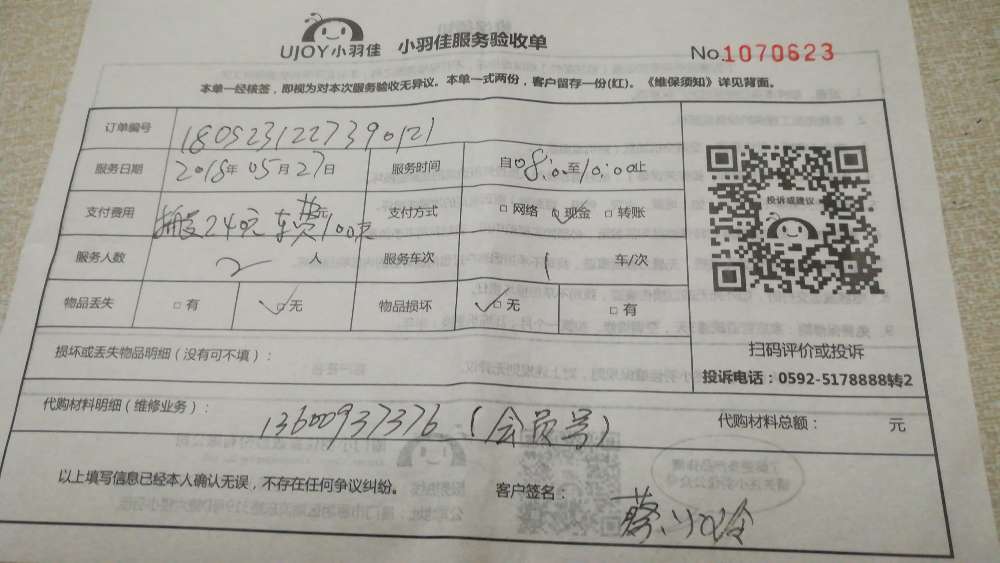 UJOY小羽佳 小羽佳服务验收单 No.1070623
本单一经核签，即视为对本次服务验收无异议。本单一式两份，客户留存一份(红)。《维保须知》详见背面。
订单编号 1805231227390121
服务日期 2018年05月27日 服务时间 自08:00至10:00止
支付费用 搬运240元 车费100元 支付方式 □网络 ☑现金 □转账
服务人数 2人 服务车次 1车/次
物品丢失 □有 ☑无 物品损坏 ☑无 □有
投诉或建议
扫码评价或投诉
投诉电话：0592-5178888转2
损坏或丢失物品明细（没有可不填）：
代购材料明细（维修业务）： 13600937376（会员号） 代购材料总额： 元
以上填写信息已经本人确认无误，不存在任何争议纠纷。 客户签名：